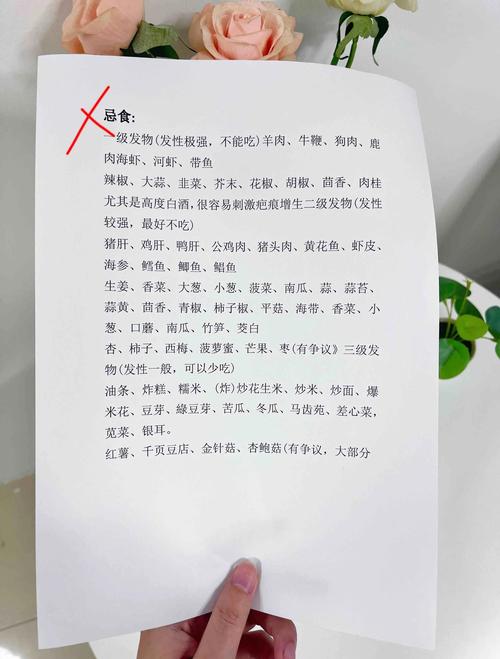 忌食:
一级发物(发性极强，不能吃)羊肉、牛鞭、狗肉、鹿
肉海虾、河虾、带鱼
辣椒、大蒜、韭菜、芥末、花椒、胡椒、茴香、肉桂
尤其是高度白酒,很容易刺激疤痕增生二级发物(发性
较强，最好不吃)
猪肝、鸡肝、鸭肝、公鸡肉、猪头肉、黄花鱼、虾皮、
海参、鳕鱼、鲫鱼、鲳鱼
生姜、香菜、大葱、小葱、菠菜、南瓜、蒜、蒜苔、
蒜黄、茴香、青椒、柿子椒、平菇、海带、香菜、小
葱、口蘑、南瓜、竹笋、茭白
杏、柿子、西梅、菠萝蜜、芒果、枣(有争议》三级发
物(发性一般，可以少吃)
油条、炸糕、糯米、(炸)炒花生米、炒米、炒面、爆
米花、豆芽、绿豆芽、苦瓜、冬瓜、马齿苑、差心菜，
苋菜、银耳。
红薯、千页豆店、金针菇、杏鲍菇(有争议，大部分